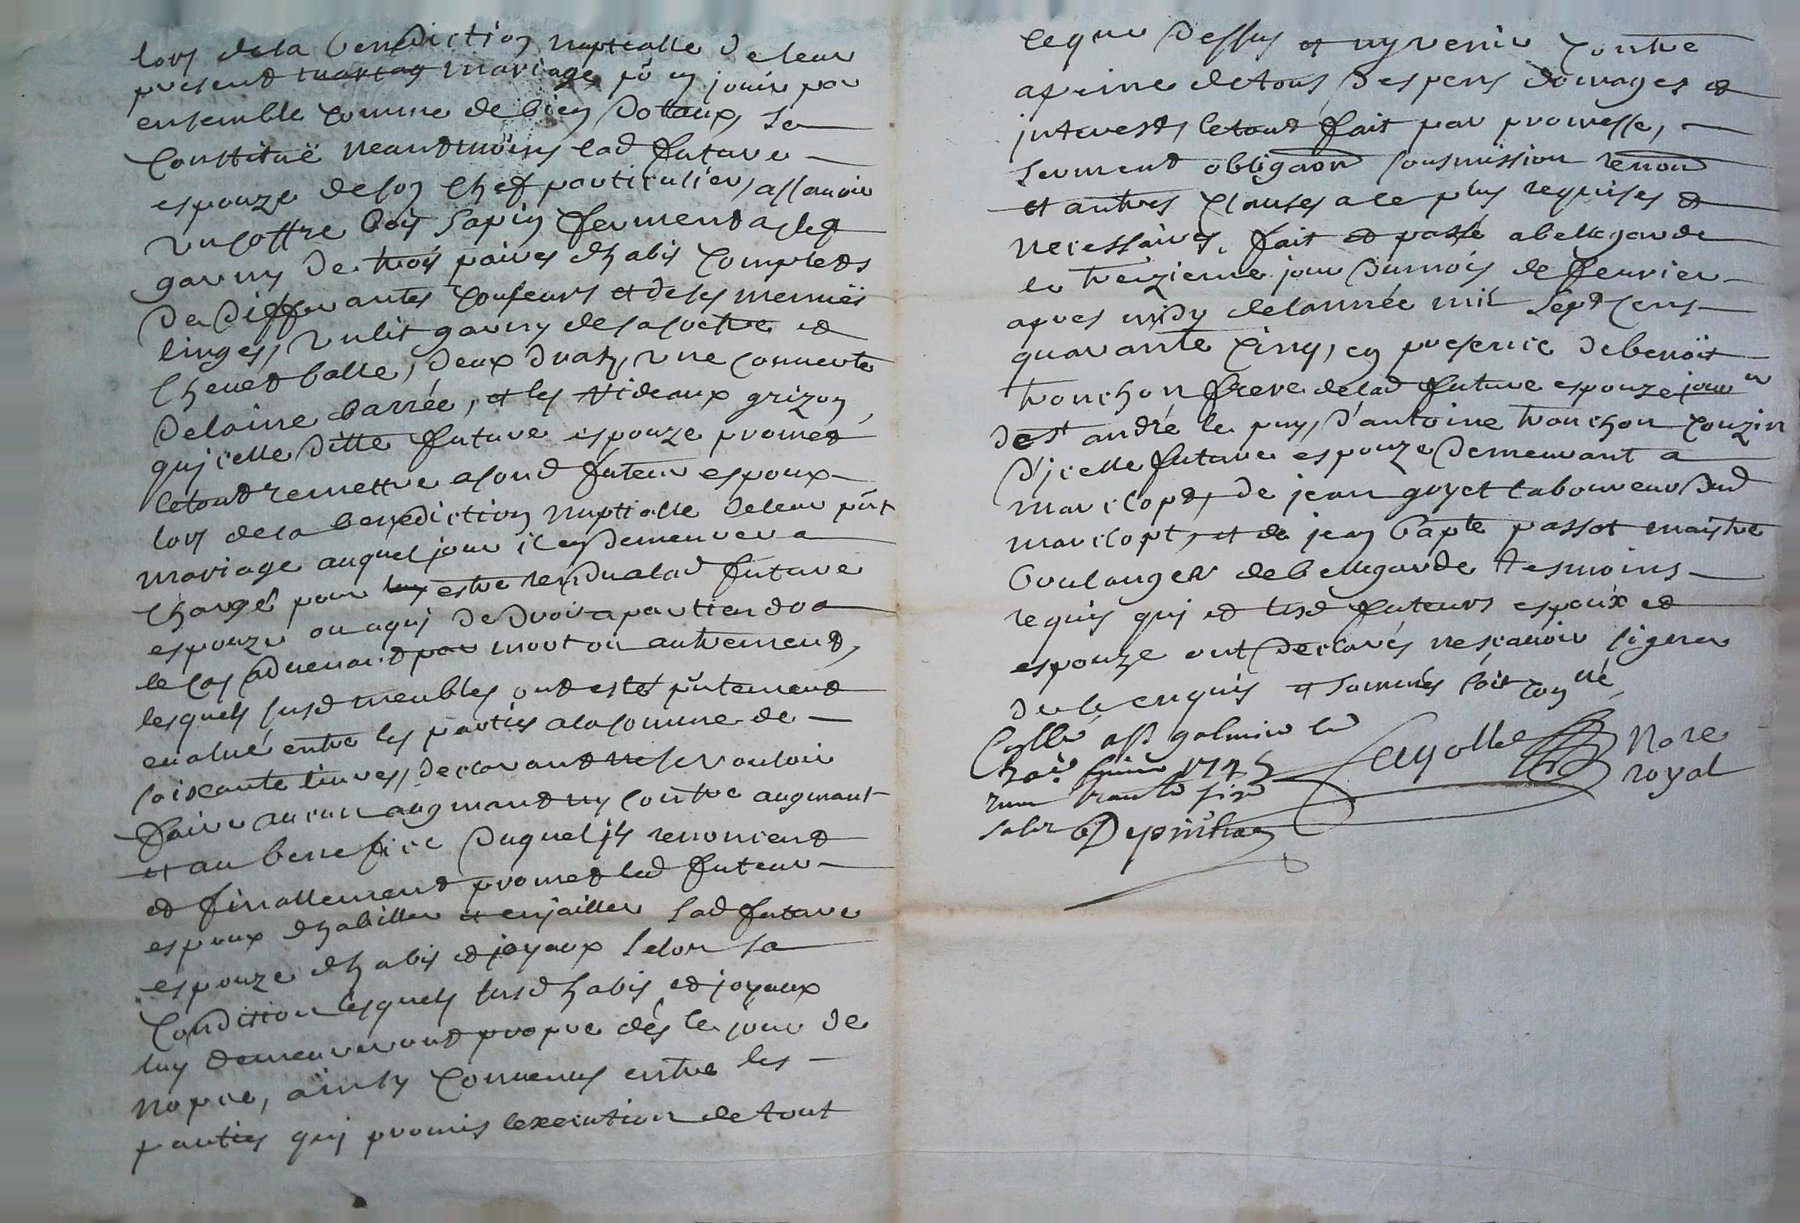 lors de la benediction nuptialle de leur
present mariage pô en jouir par
ensemble comme de bien dottaux, se
constituë neandmoins lad future
espouze de son chef particulier, assavoir
un coffre bois sapin fermend a clef
garny de trois paires dhabis complets
de differantes couleurs et de ses menuës
linges, un lit garny de sa coetre et
chevet balle, deux draps, une couverte
de laine barrée, et les rideaux grizon,
qu'icelle ditte future espouze promet
le tout remettre a sond futeur espoux
lors de la benediction nuptialle de leur pñt
mariage auquel jour il en demeurera
chargé pour estre rendu a lad future
espouze ou a qui de droit apartiendra
le cas advenant par mort ou autrement,
lesquels susd meubles ont esté pñtement
evalué entre les parties a la somme de
soixante livres, declarant ne se vouloir
faire aucun augmand ny contre augmant
et au benefice duquel ils renoncent
et finallement promet led futeur
espoux dhabiller et enjailler lad future
espouze dhabis et joyaux selon sa
condition lesquels susd habis et joyaux
luy demeureront propre dés le jour de
nopce, ainsy convenus entre les
parties qui promis lexecution de tout
ce que dessus et ny venir contre
a peine de tous despens domages et
interest, le tout fait par promesse,
serment obligaôn sousmission renôn
et autres clauses a ce plus requises et
necessaires. fait et passé a bellegarde
le treizieme jour du mois de fevrier
apres midy de lannée mil sept cens
quarante cinq, en presence de benoit
tronchon frere de lad future espouze jour
de st andré le puy, d'antoine tronchon couzin
d'icelle future espouze demeurant a
marclopt, de jean goyet laboureur dud
marclopt, et de jean bapte passot maistre
boulanger de bellegarde tesmoins
requis qui et lesd futeurs espoux et
espouze ont declarés ne scavoir signer
de ce enquis et sommés soit con llé
Collé a st galmier le
1745

nore
royal